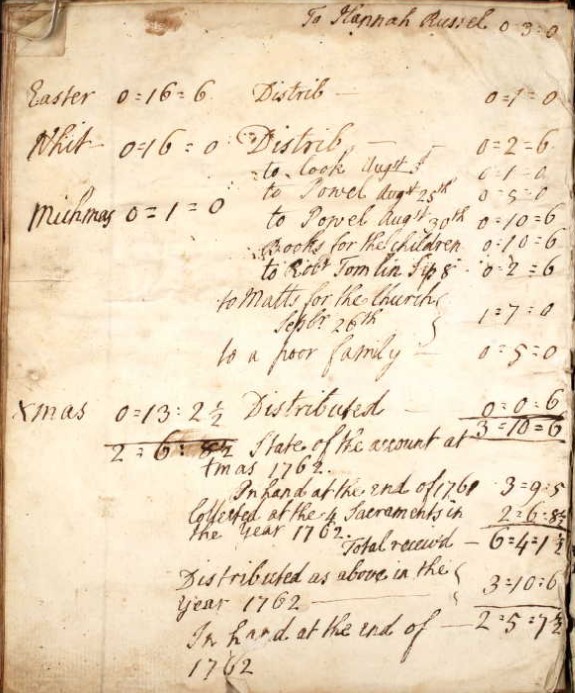 To Hannah Russel 0=3=0
Easter 0=16=6 Distrib — 0=1=0
Whit 0=16=0 Distrib — 0=2=6
to Cook Augst 0=1=0
to Powel Augst 25th 0=5=0
Michmas 0=1=0 to Powel Augst 30th 0=10=6
Books for the children 0=10=6
to Robt Tomlin Sep 8 0=2=6
to Matts for the Church
Sepbr 26th 1=7=0
to a poor family — 0=5=0
Xmas 0=13:2½ Distributed — 0=0=6
3=10=6
2=6:8½ State of the account at
Xmas 1762.
In hand at the end of 1761 3=9=5
Collected at the 4 Sacraments in
the year 1762. 2=6:8½
Total receiv'd — 6=4=1½
Distributed as above in the
year 1762 — 3=10=6
In hand at the end of — 2=5=7½
1762